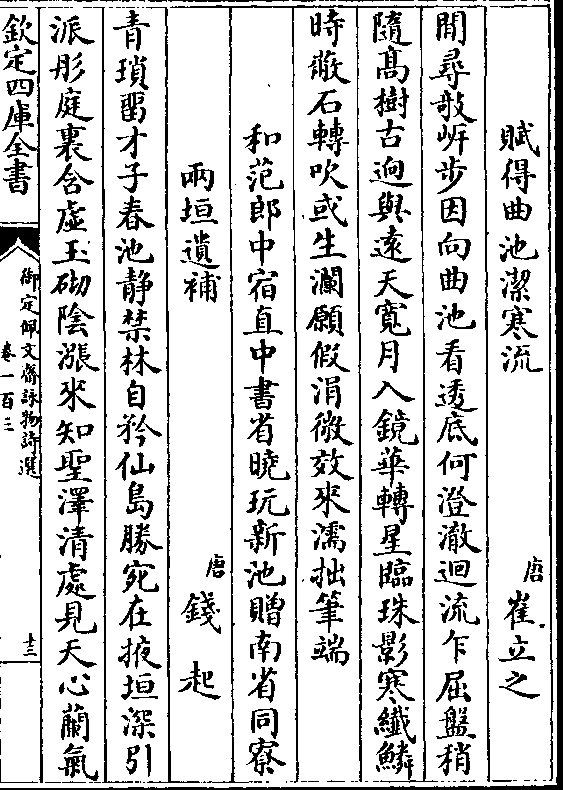 賦得曲池潔寒流
唐 崔立之
閒尋欹岍步因向曲池看透底何澄澈迴流乍屈盤稍
隨高樹古逈與遠天寛月入鏡華轉星臨珠影寒纎鱗
時蔽石轉吹或生瀾願假涓微效來濡拙筆端
和范郎中宿直中書省曉玩新池贈南省同寮
兩垣遺補
唐 錢起
青瑣畱才子春池静禁林自矜仙島勝宛在掖垣深引
派彤庭裏含虚玉砌隂漲來知聖澤清處見天心蘭氣
欽定四庫全書
御定佩文齋詠物詩選
卷一百三
十三